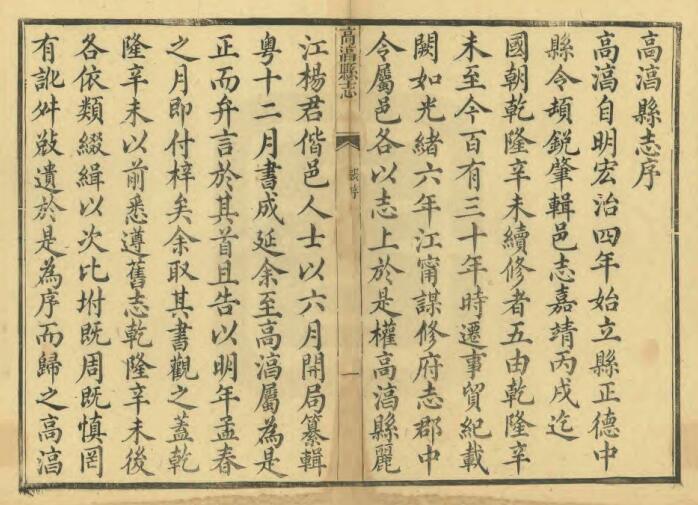 高淳縣志序
高淳自明宏治四年始立縣正德中
縣令頓銳肇輯邑志嘉靖丙戌迄
國朝乾隆辛未續修者五由乾隆辛
未至今百有三十年時遷事貿紀載
闕如光緒六年江甯謀修府志郡中
令屬邑各以志上於是權高淳縣麗
高淳縣志
序
一
江楊君偕邑人士以六月開局纂輯
粵十二月書成延余至高淳屬為是
正而弁言於其首且告以明年孟春
之月即付梓矣余取其書觀之蓋乾
隆辛未以前悉遵舊志乾隆辛未後
各依類綴緝以次比坿既周既慎罔
有訛舛敚遺於是為序而歸之高淳